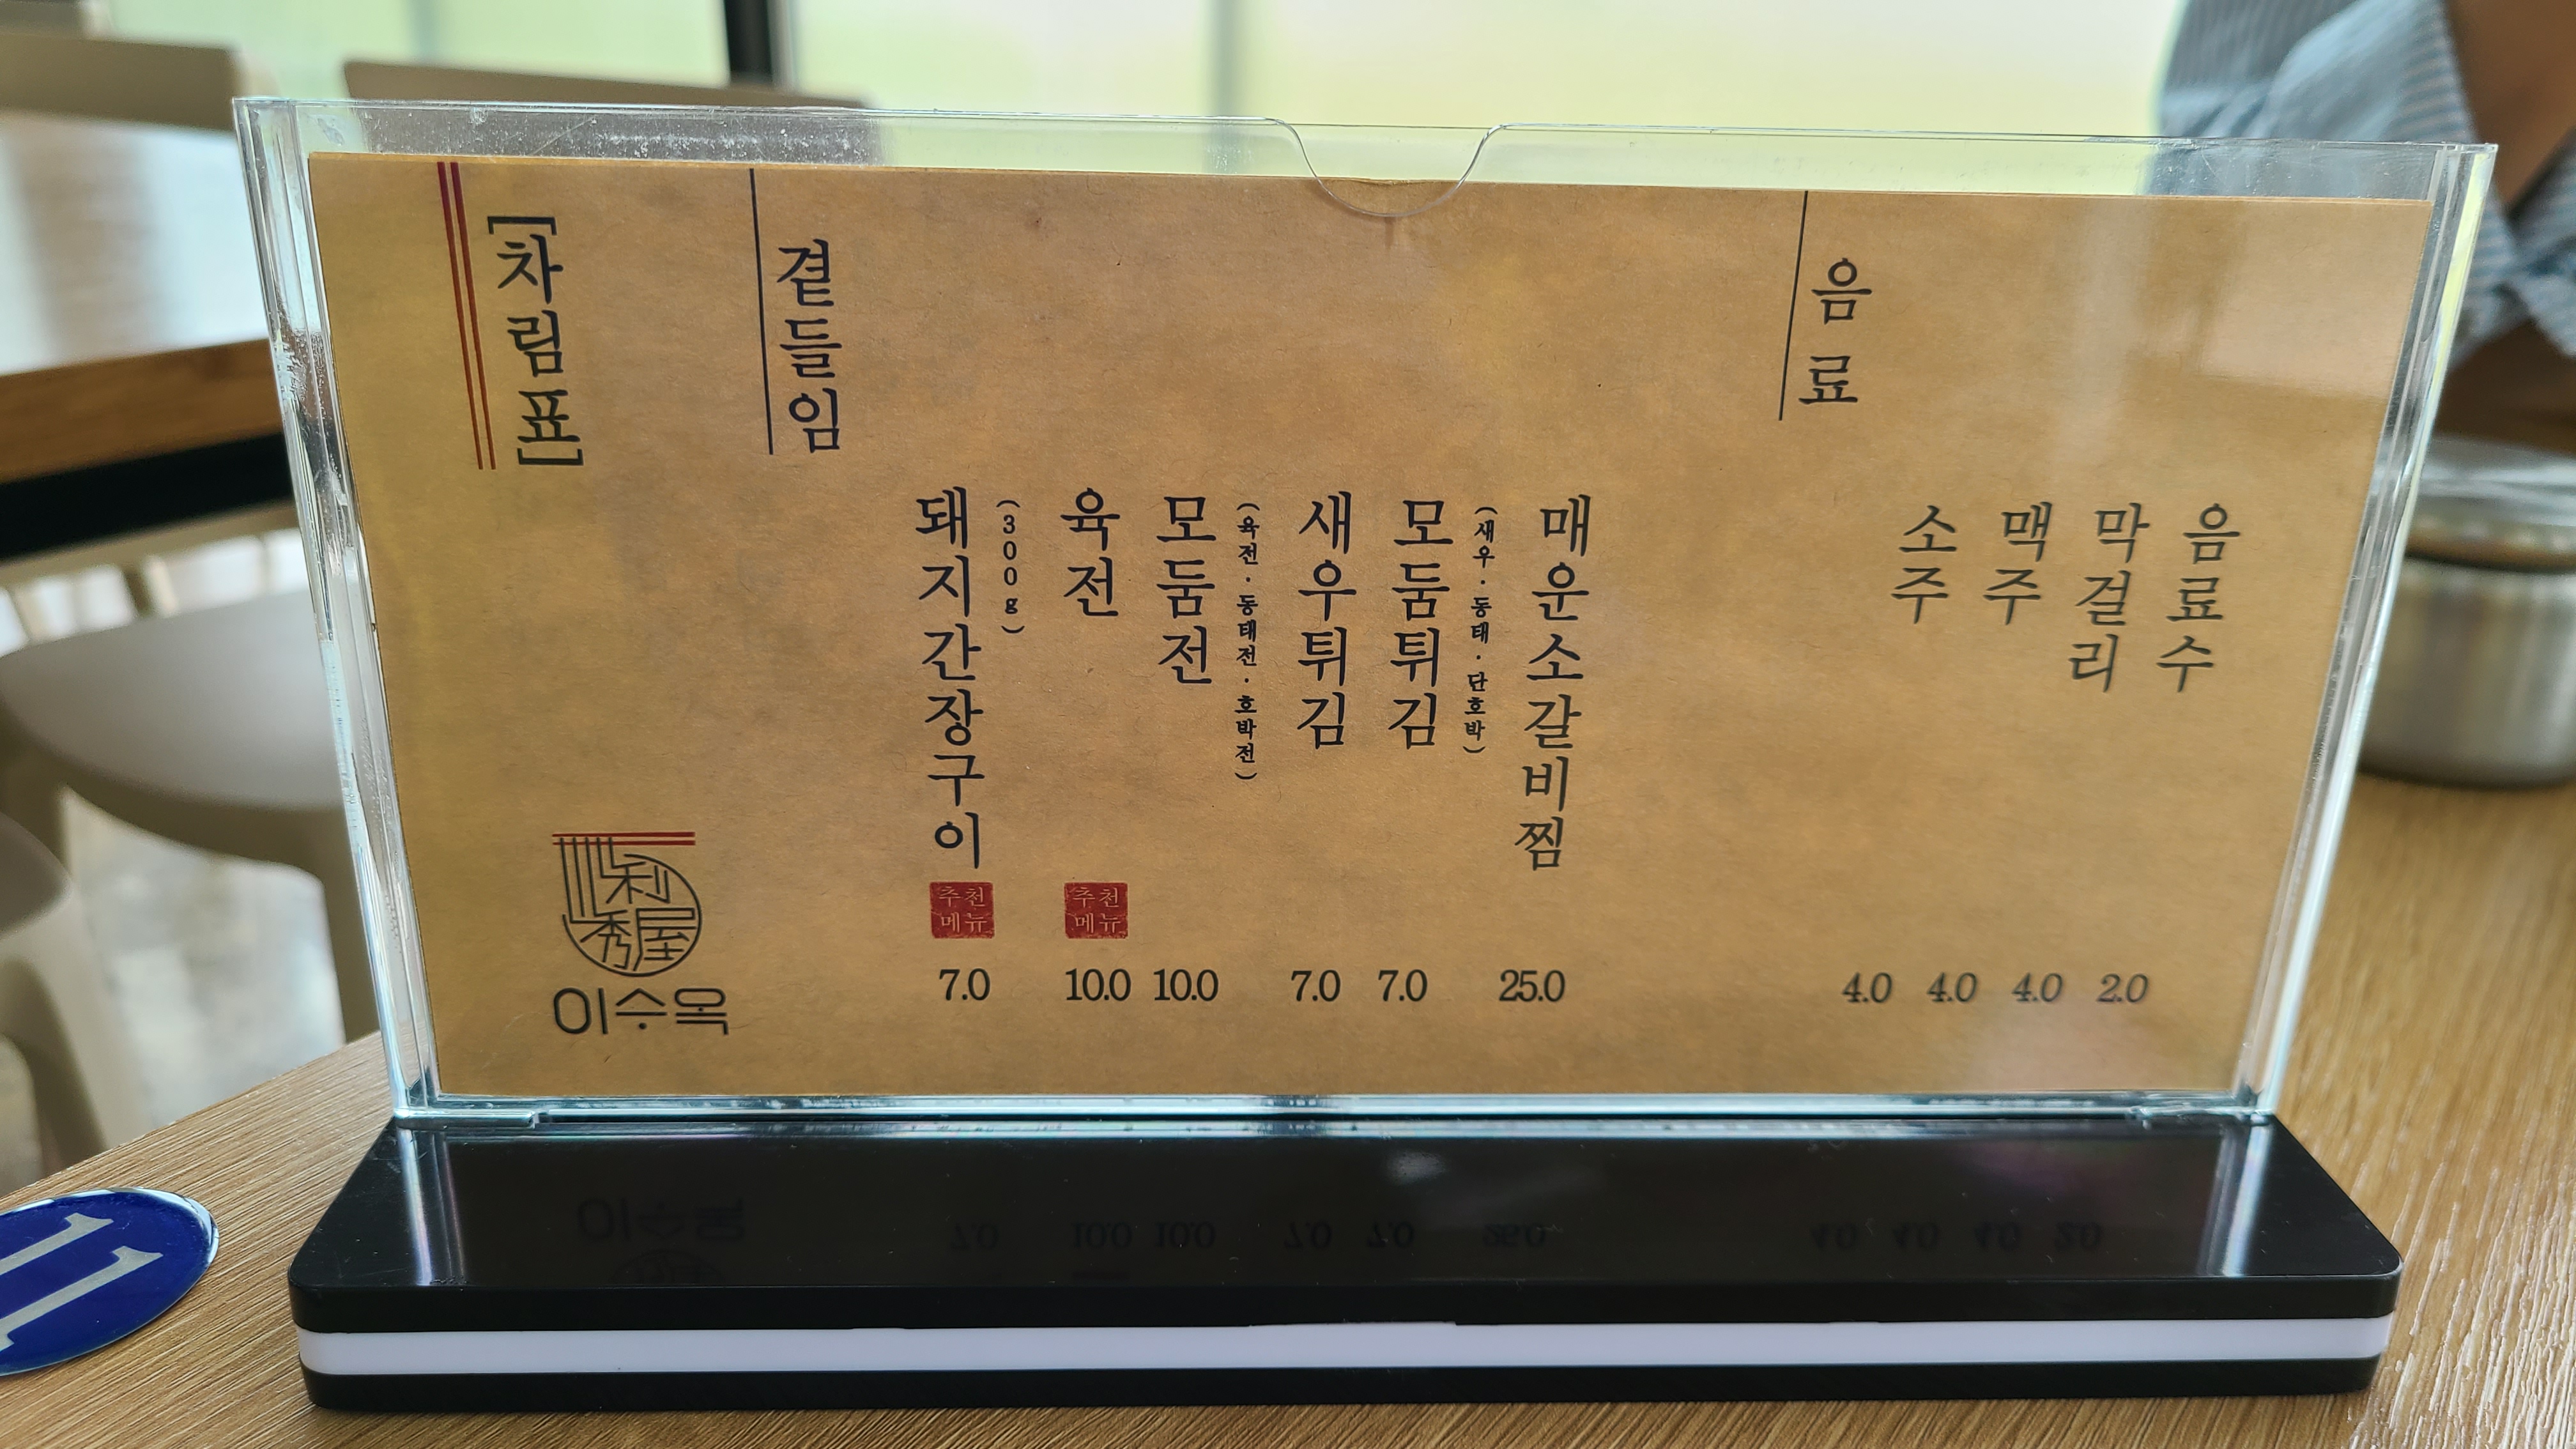 [차림표]
곁들임
돼지간장구이
(300g)
추천
메뉴
7.0
육전
추천
메뉴
10.0
모둠전
(육전·동태전·호박전)
10.0
새우튀김
7.0
모둠튀김
(새우·동태·단호박)
7.0
매운소갈비찜
25.0
음료
소주
4.0
맥주
4.0
막걸리
4.0
음료수
2.0
利
秀屋
이수옥
11